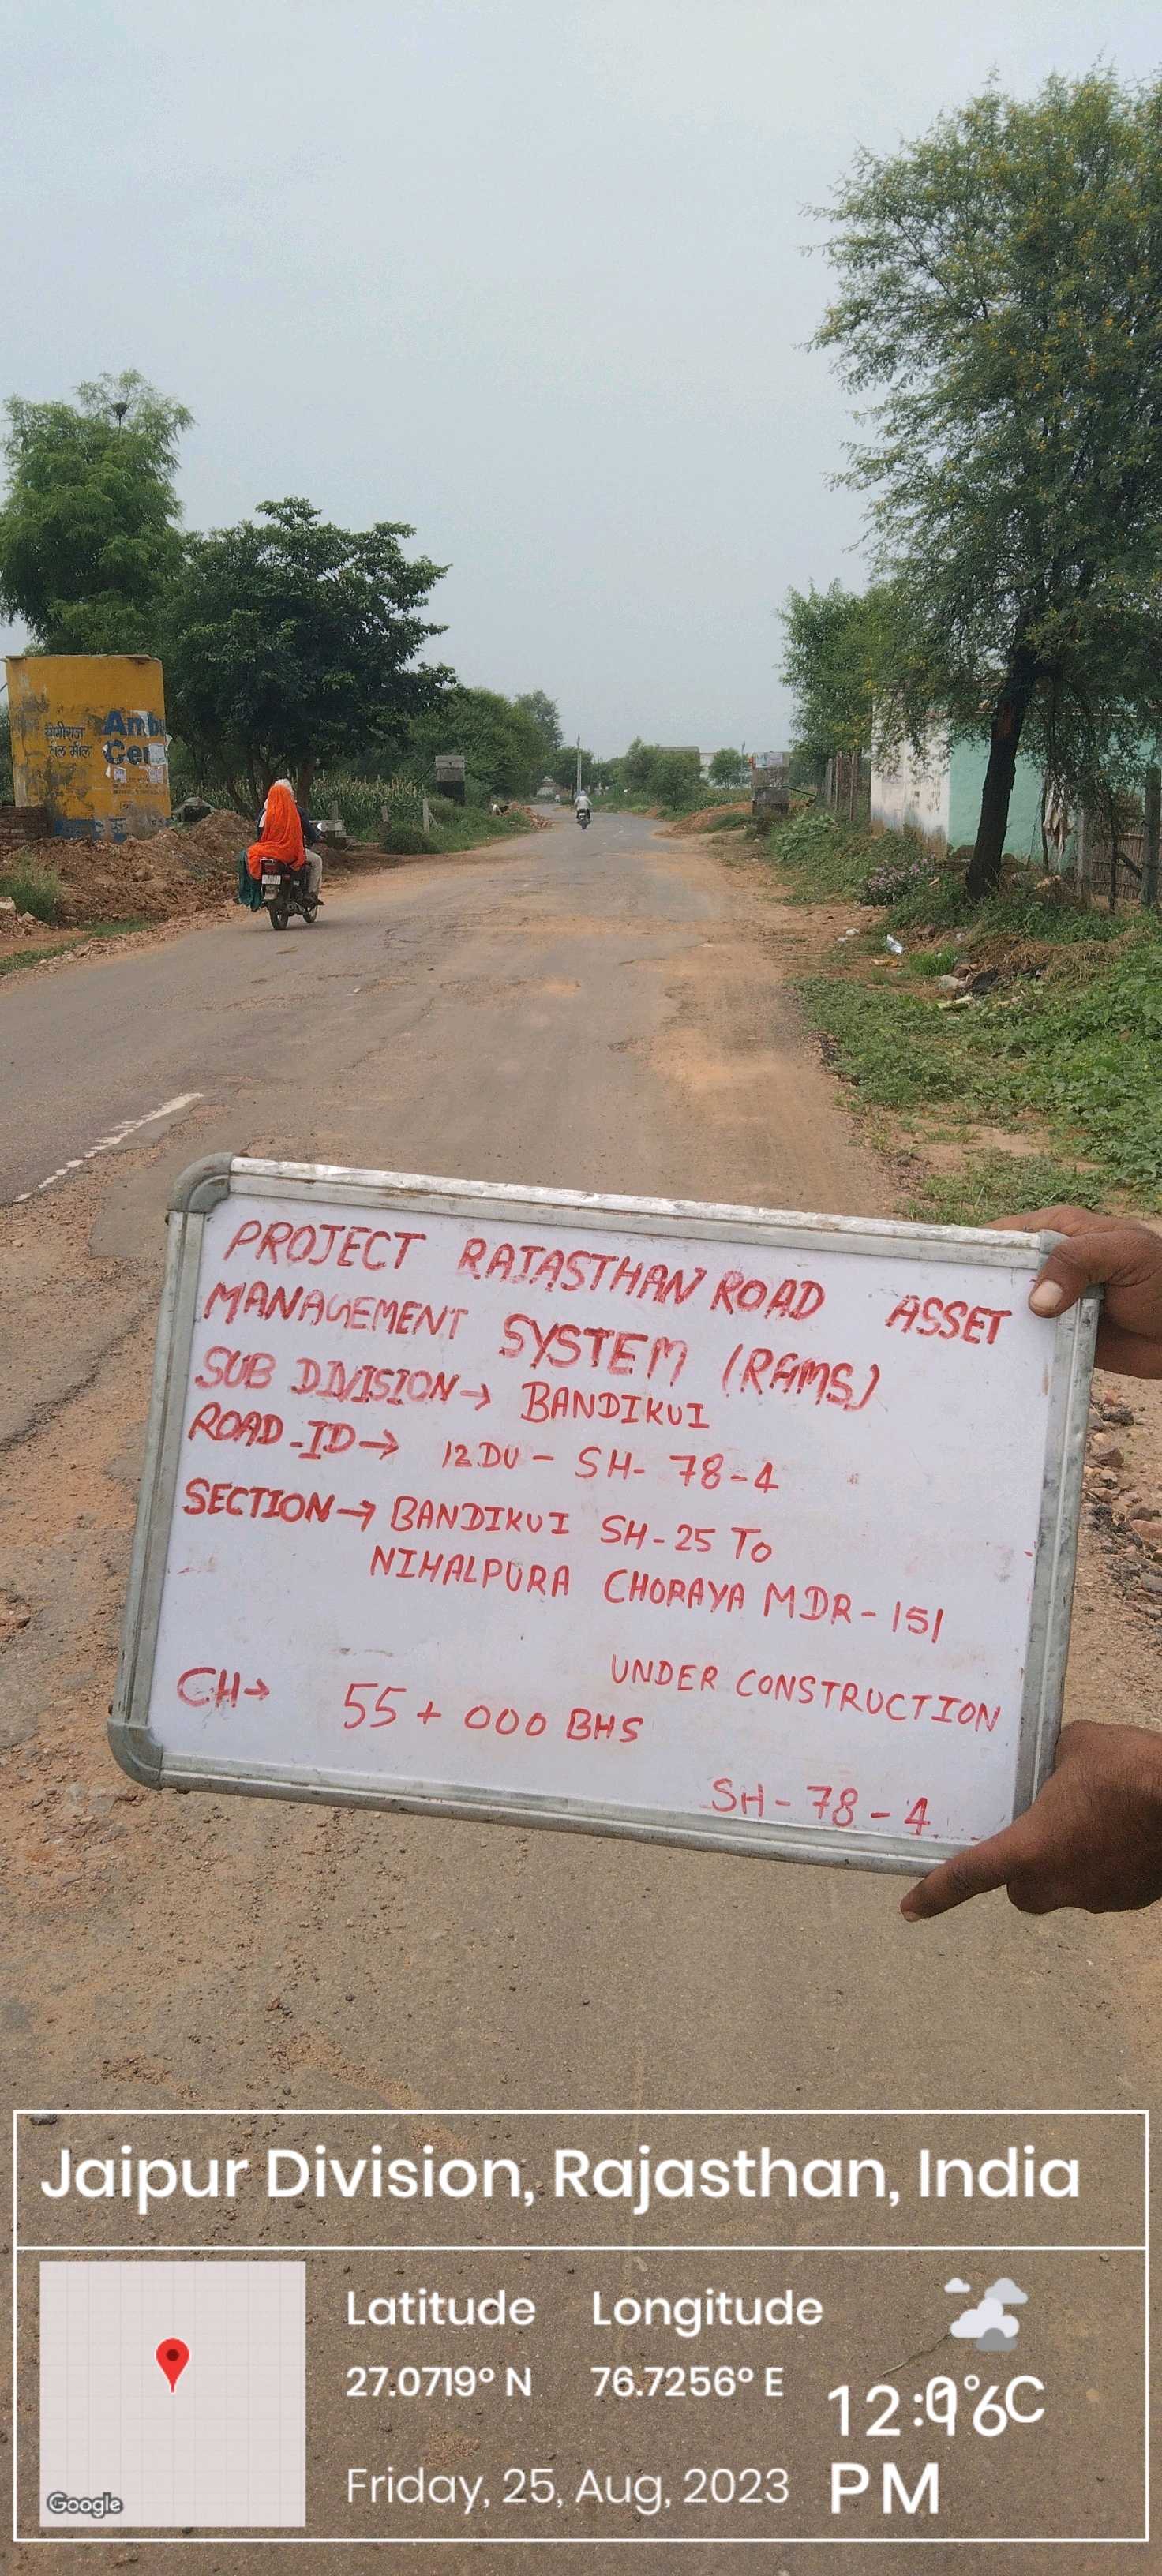 योगीराज
तेल मील
PROJECT RAJASTHAN ROAD ASSET
MANAGEMENT SYSTEM (RAMS)
SUB DIVISION → BANDIKUI
ROAD-ID → 12DU - SH- 78-4
SECTION → BANDIKUI SH-25 TO
NIHALPURA CHORAYA MDR-151
UNDER CONSTRUCTION
CH→ 55+000 BHS
SH-78-4
Jaipur Division, Rajasthan, India
Latitude Longitude
27.0719° N 76.7256° E
Friday, 25, Aug, 2023
PM
Google